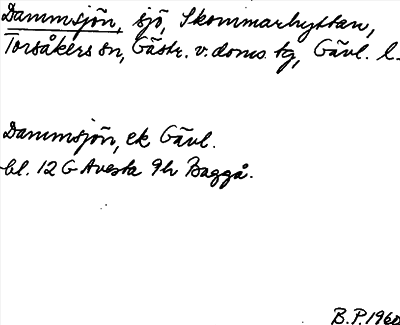 Dammsjön, sjö, Skommarhyttan,
Torsåkers sn, Gästr. v. doms. tg, Gävl. l.
Dammsjön, ek Gävl.
bl. 12 G Avesta 9h Baggå.
B.P. 1960